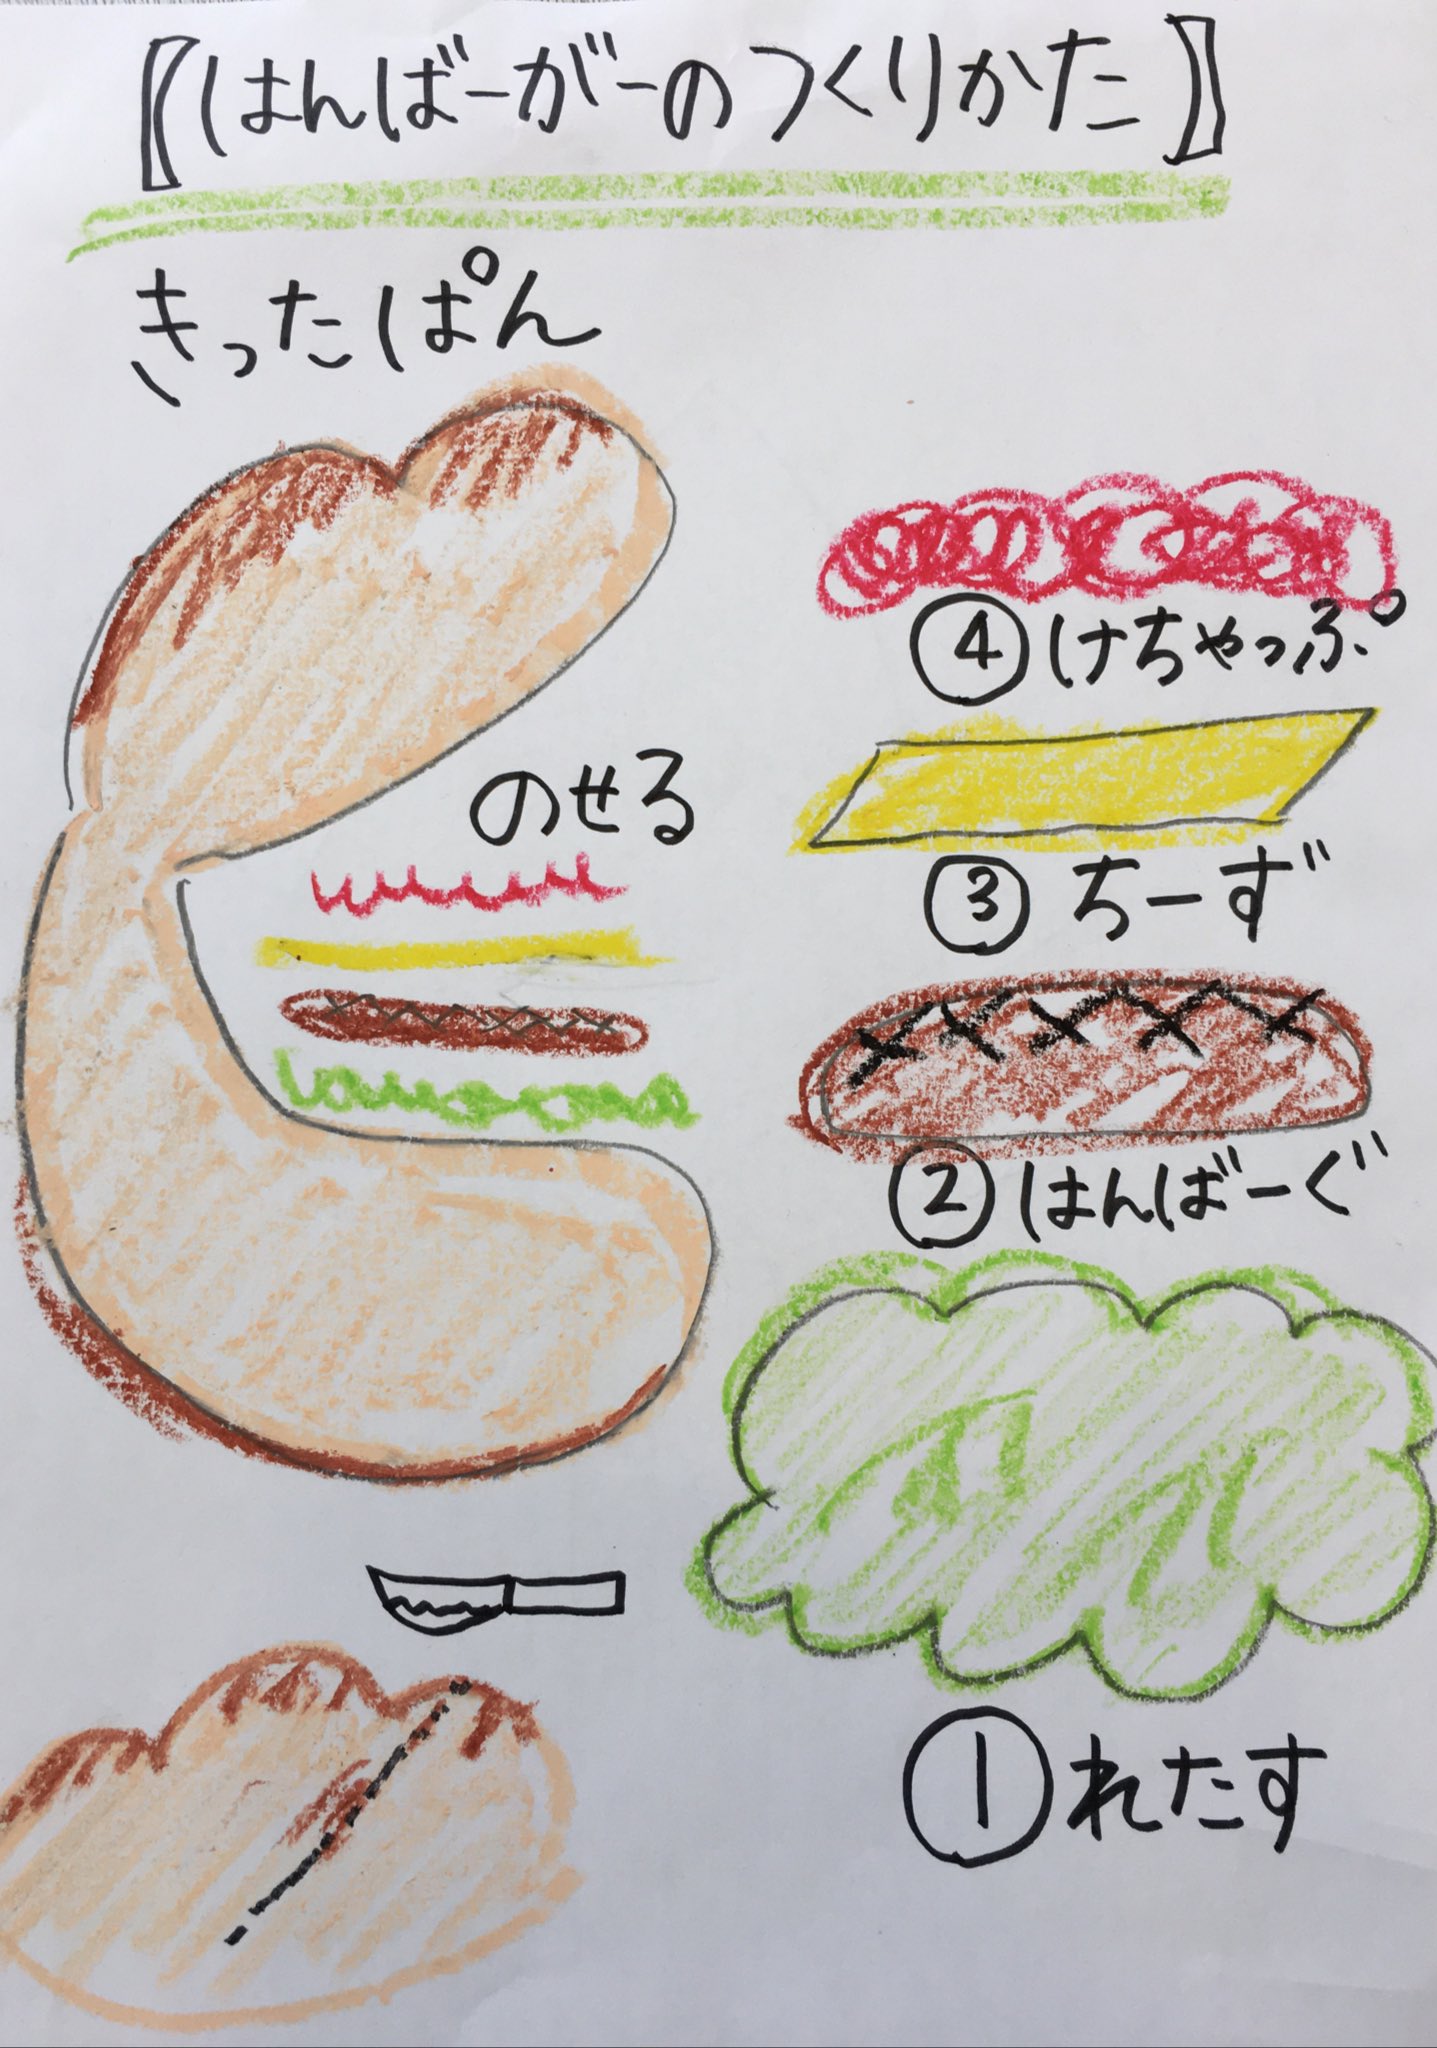 〖はんばーがーのつくりかた〗
きったぱん
のせる
④けちゃっぷ
③ちーず
②はんばーぐ
①れたす